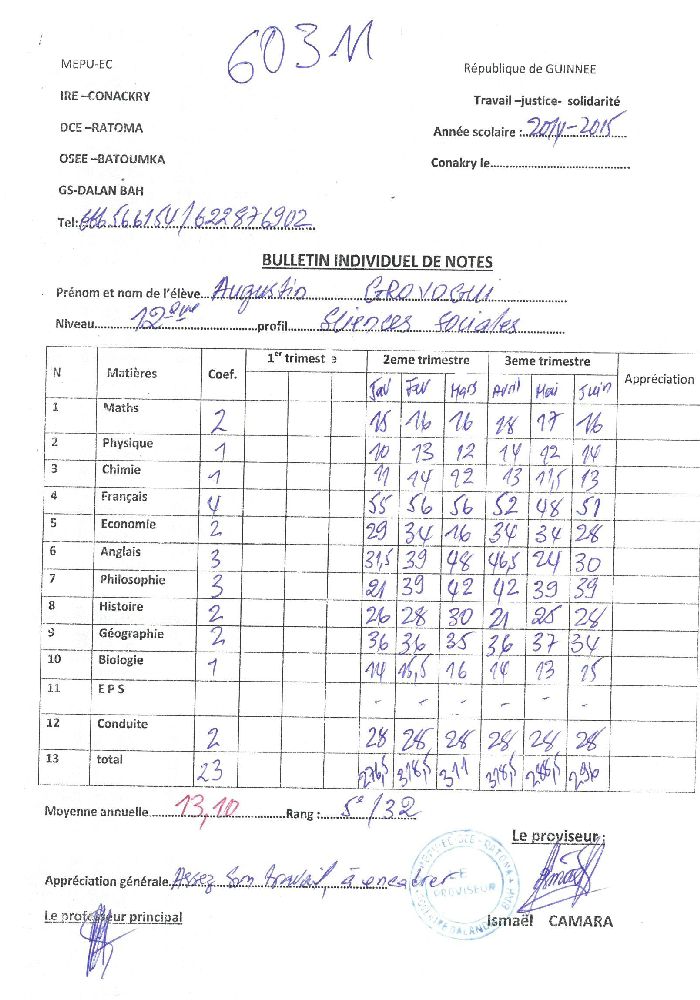 603 M
MEPU-EC
République de GUINNEE
IRE –CONACKRY
Travail –justice- solidarité
DCE –RATOMA
Année scolaire :..2014-2015
OSEE –BATOUMKA
Conakry le............................................
GS-DALAN BAH
Tel: 666566154/622876902
BULLETIN INDIVIDUEL DE NOTES
Prénom et nom de l'élève...Augustin GROVOGUI
Niveau...12ème...profil...Sciences Sociales
N Matières Coef. 1er trimestre 2eme trimestre 3eme trimestre Appréciation
Jav Fev Mars Avril Mai Juin
1 Maths 2 15 16 16 18 17 16
2 Physique 1 10 13 12 14 12 14
3 Chimie 1 11 14 12 13 11,5 13
4 Français 4 55 56 56 52 48 51
5 Economie 2 29 34 16 34 34 28
6 Anglais 3 31,5 39 48 46,5 24 30
7 Philosophie 3 21 39 42 42 39 39
8 Histoire 2 26 28 30 21 25 28
9 Géographie 2 36 36 35 36 37 34
10 Biologie 1 14 15,5 16 14 13 15
11 E P S - - - - - -
12 Conduite 2 28 28 28 28 28 28
13 total 23 276,5 318,5 311 318,5 288,5 296
Moyenne annuelle...13,10...Rang :...5e/32
Le proviseur :
Appréciation générale...Assez bon travail, à encadrer
PROVISEUR
Le professeur principal
Ismaël CAMARA